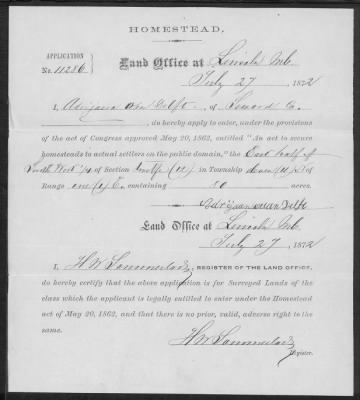 HOMESTEAD.
APPLICATION
No. 11286
Land Office at Lincoln Neb.
July 27 1872
I, Adrijaan van Delft, of Seward Co.
, do hereby apply to enter, under the provisions
of the act of Congress approved May 20, 1862, entitled "An act to secure
homesteads to actual settlers on the public domain," the East half of
North West ¼ of Section twelve (12) in Township (11) N of
Range one (1) E. containing 80 acres.
Adrijaan van Delft
Land Office at Lincoln Neb.
July 27 1872
I, H W Sommerlad, REGISTER OF THE LAND OFFICE,
do hereby certify that the above application is for Surveyed Lands of the
class which the applicant is legally entitled to enter under the Homestead
act of May 20, 1862, and that there is no prior, valid, adverse right to the
same.
H W Sommerlad
Register.